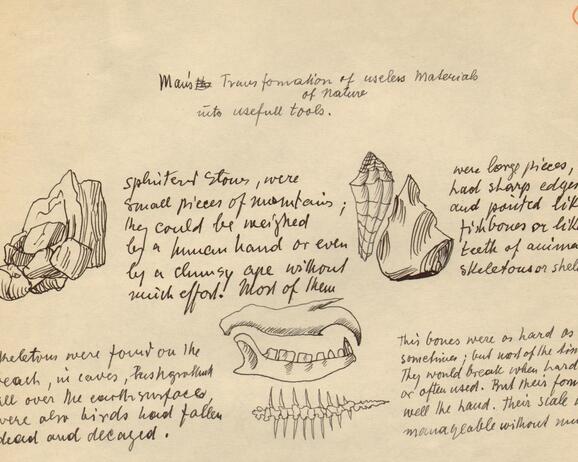 Man's Transformation of useless Materials
of Nature
into usefull tools.
splintered Stones, were
small pieces of mountains;
they could be weighed
by a human hand or even
by a clumsy ape without
much effort! Most of them
were large pieces,
had sharp edges
and pointed lik
fishbones or lik
teeth of anima
skeletons or shel
keletons were found on the
each, in caves,
all over the earth surfaces,
were also birds had fallen
dead and decayed.
This bones were as hard as
sometimes; but most of the tim
They would break when hard
or often used. But their for
well the hand. Their scale
manageable without mu